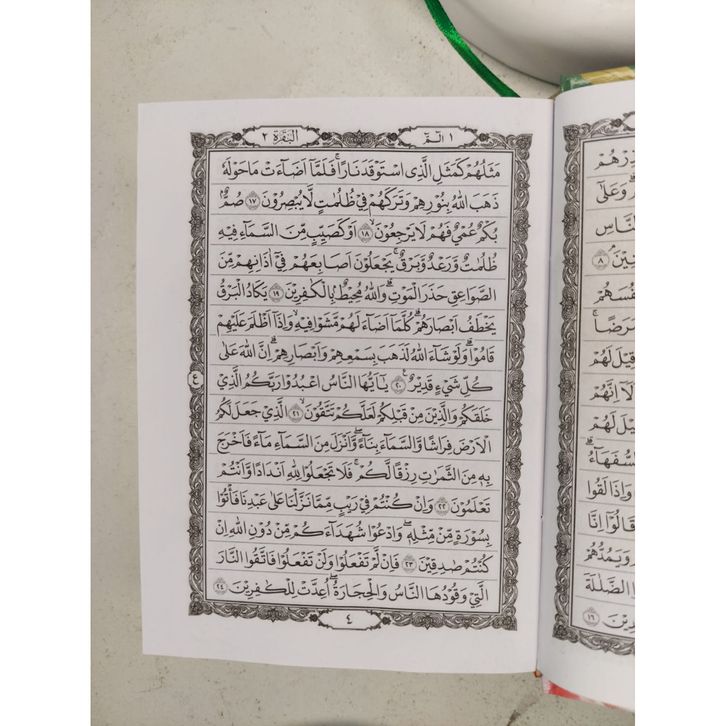 ١ الٓمّٓ
البقرة ٢
مَثَلُهُمْ كَمَثَلِ الَّذِى اسْتَوْقَدَ نَارًا ۚ فَلَمَّآ اَضَاۤءَتْ مَا حَوْلَهٗ
ذَهَبَ اللّٰهُ بِنُوْرِهِمْ وَتَرَكَهُمْ فِيْ ظُلُمٰتٍ لَّا يُبْصِرُوْنَ ١٧ صُمٌّۢ
بُكْمٌ عُمْيٌ فَهُمْ لَا يَرْجِعُوْنَ ۙ ١٨ اَوْ كَصَيِّبٍ مِّنَ السَّمَاۤءِ فِيْهِ
ظُلُمٰتٌ وَّرَعْدٌ وَّبَرْقٌ ۚ يَجْعَلُوْنَ اَصَابِعَهُمْ فِيْٓ اٰذَانِهِمْ مِّنَ
الصَّوَاعِقِ حَذَرَ الْمَوْتِ ۗ وَاللّٰهُ مُحِيْطٌۢ بِالْكٰفِرِيْنَ ١٩ يَكَادُ الْبَرْقُ
يَخْطَفُ اَبْصَارَهُمْ ۗ كُلَّمَآ اَضَاۤءَ لَهُمْ مَّشَوْا فِيْهِ ۙ وَاِذَآ اَظْلَمَ عَلَيْهِمْ
قَامُوْا ۗ وَلَوْ شَاۤءَ اللّٰهُ لَذَهَبَ بِسَمْعِهِمْ وَاَبْصَارِهِمْ ۗ اِنَّ اللّٰهَ عَلٰى
كُلِّ شَيْءٍ قَدِيْرٌ ۚ ٢٠ يٰٓاَيُّهَا النَّاسُ اعْبُدُوْا رَبَّكُمُ الَّذِيْ
خَلَقَكُمْ وَالَّذِيْنَ مِنْ قَبْلِكُمْ لَعَلَّكُمْ تَتَّقُوْنَ ۙ ٢١ الَّذِيْ جَعَلَ لَكُمُ
الْاَرْضَ فِرَاشًا وَّالسَّمَاۤءَ بِنَاۤءً ۖ وَّاَنْزَلَ مِنَ السَّمَاۤءِ مَاۤءً فَاَخْرَجَ
بِهٖ مِنَ الثَّمَرٰتِ رِزْقًا لَّكُمْ ۚ فَلَا تَجْعَلُوْا لِلّٰهِ اَنْدَادًا وَّاَنْتُمْ
تَعْلَمُوْنَ ٢٢ وَاِنْ كُنْتُمْ فِيْ رَيْبٍ مِّمَّا نَزَّلْنَا عَلٰى عَبْدِنَا فَأْتُوْا
بِسُوْرَةٍ مِّنْ مِّثْلِهٖ ۖ وَادْعُوْا شُهَدَاۤءَكُمْ مِّنْ دُوْنِ اللّٰهِ اِنْ
كُنْتُمْ صٰدِقِيْنَ ٢٣ فَاِنْ لَّمْ تَفْعَلُوْا وَلَنْ تَفْعَلُوْا فَاتَّقُوا النَّارَ
الَّتِيْ وَقُوْدُهَا النَّاسُ وَالْحِجَارَةُ ۖ اُعِدَّتْ لِلْكٰفِرِيْنَ ٢٤
٤
٤
وَعَلٰى
قِيْلَ لَهُمْ
وَاِذَا لَقُوا
قَالُوْا اِنَّا
وَيَمُدُّهُمْ
الضَّلٰلَةَ
١٦